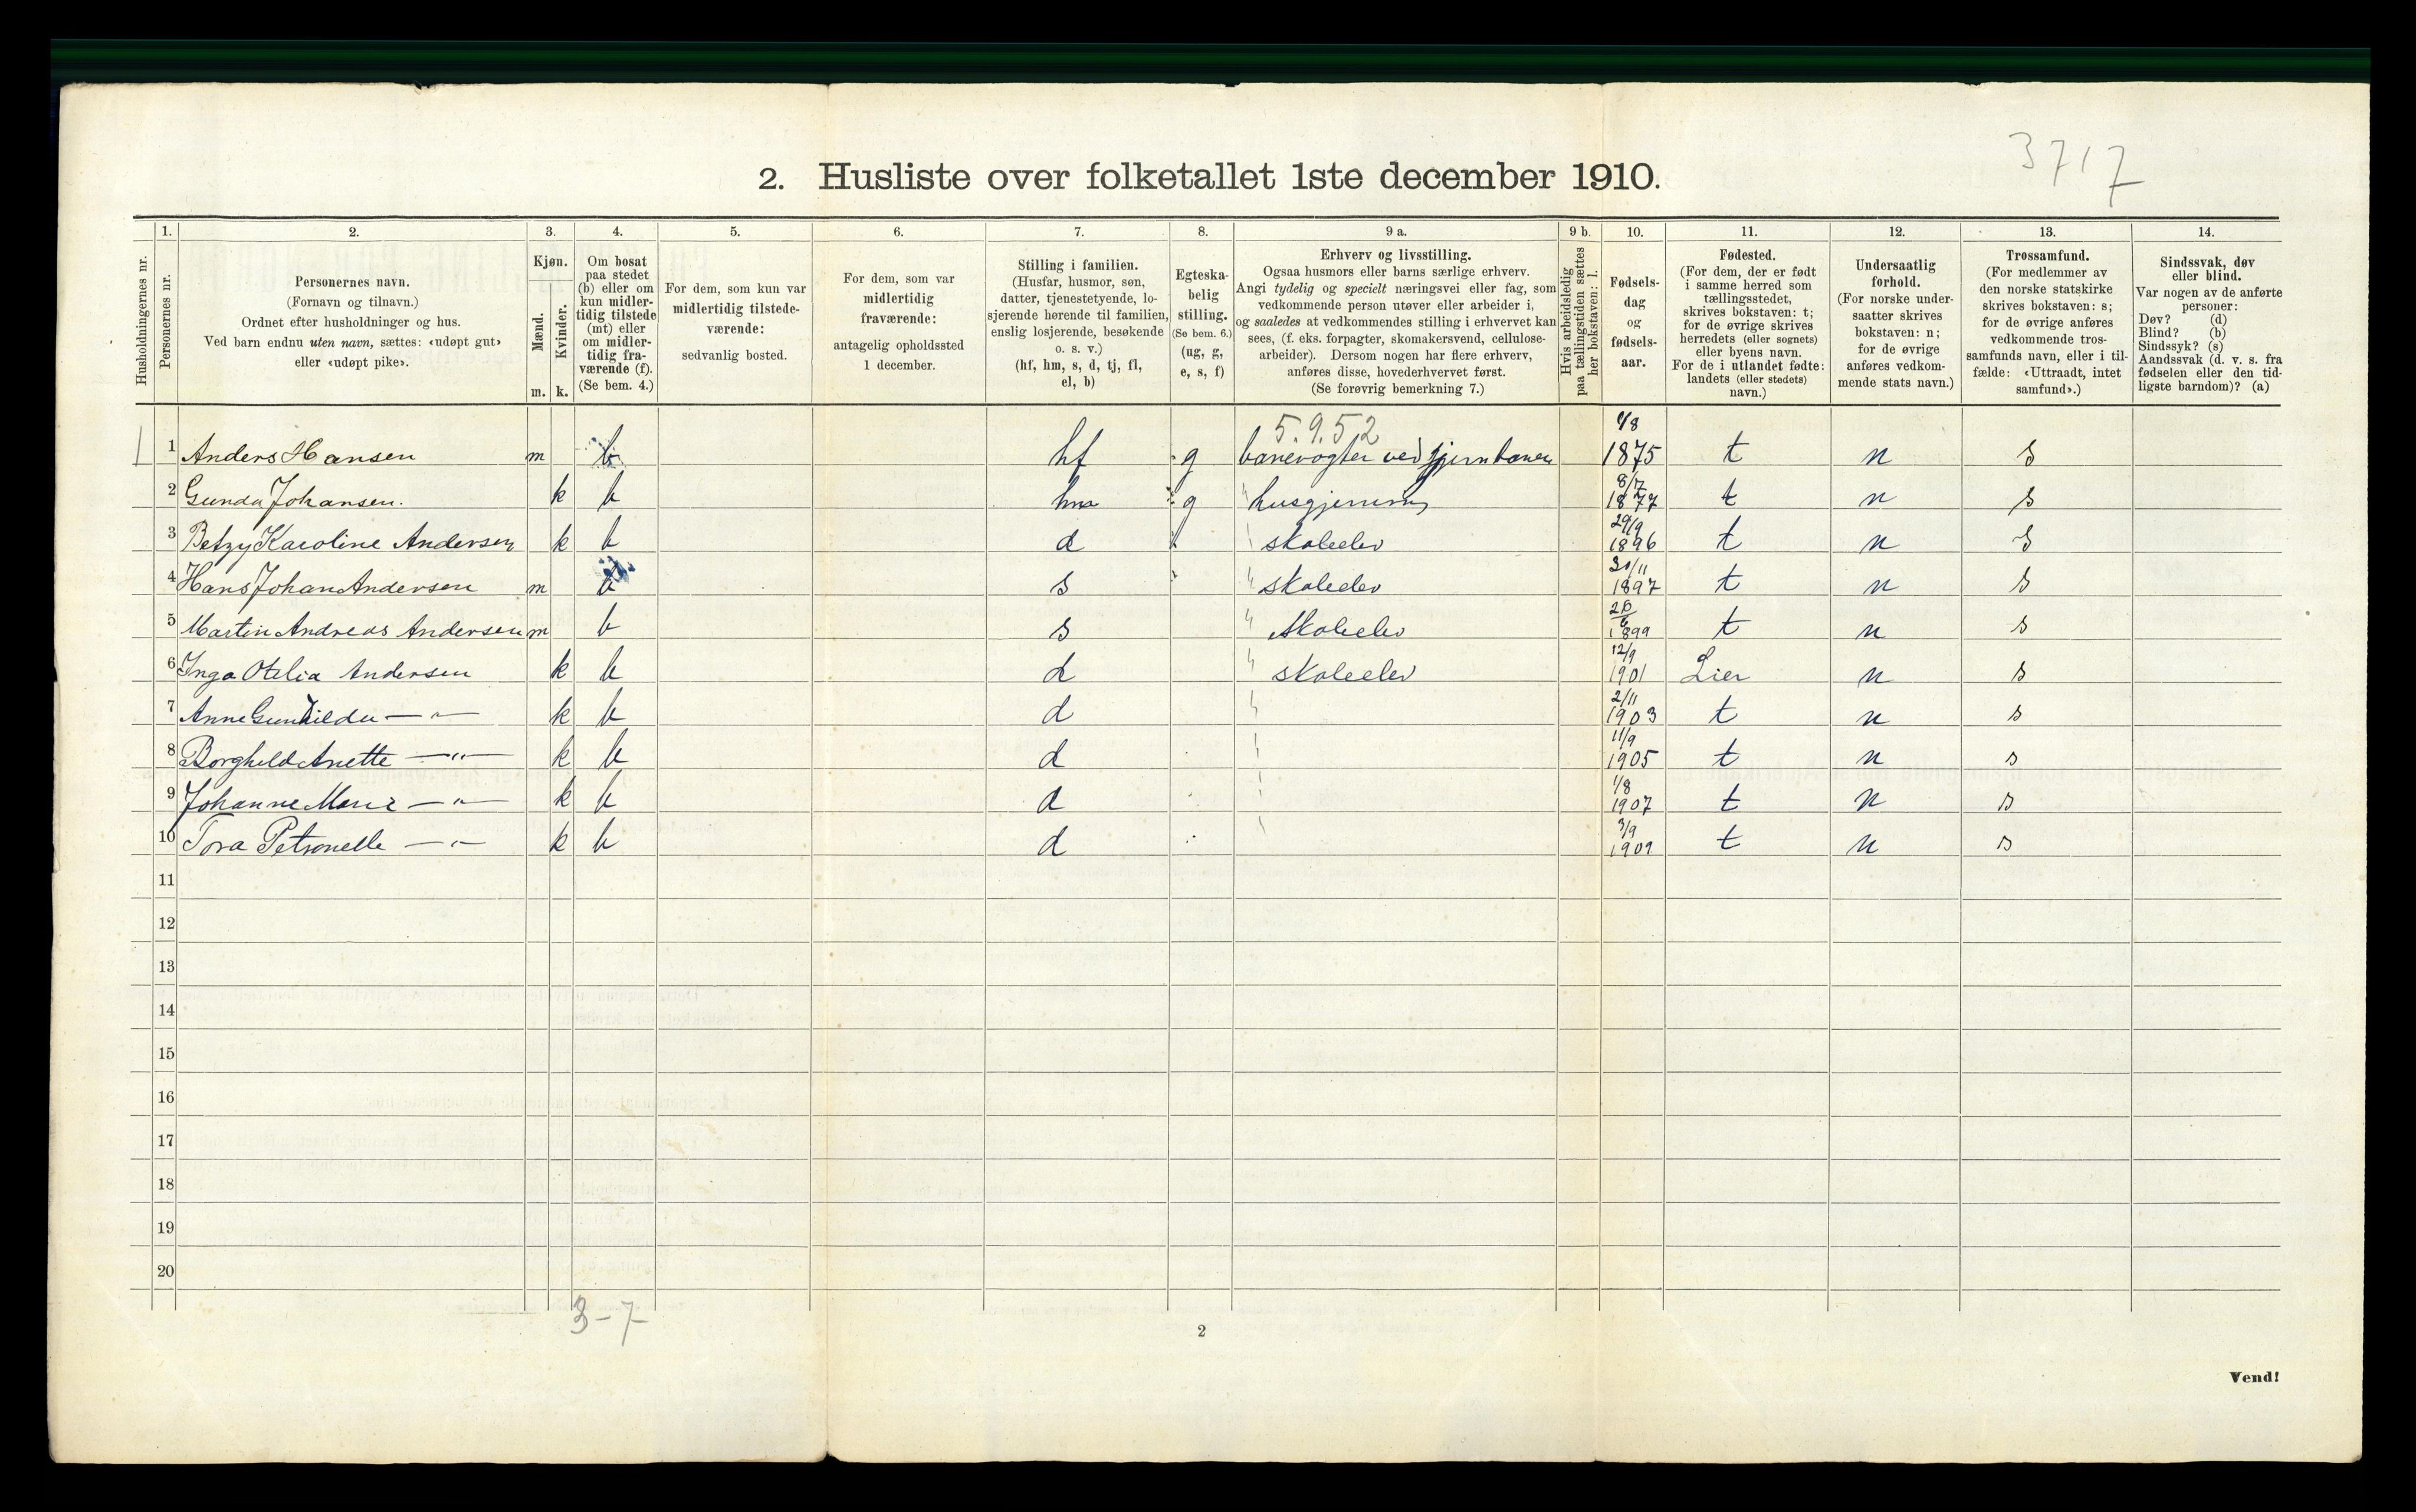 3717
2. Husliste over folketallet 1ste december 1910.
Husholdningernes nr.
1.
Personernes nr.
2.
Personernes navn.
(Fornavn og tilnavn.)
Ordnet efter husholdninger og hus.
Ved barn endnu uten navn, sættes: «udøpt gut»
eller «udøpt pike».
3.
Kjøn.
Mænd.
Kvinder.
m. k.
4.
Om bosat
paa stedet
(b) eller om
kun midler-
tidig tilstede
(mt) eller
om midler-
tidig fra-
værende (f).
(Se bem. 4.)
5.
For dem, som kun var
midlertidig tilstede-
værende:
sedvanlig bosted.
6.
For dem, som var
midlertidig
fraværende:
antagelig opholdssted
1 december.
7.
Stilling i familien.
(Husfar, husmor, søn,
datter, tjenestetyende, lo-
sjerende hørende til familien,
enslig losjerende, besøkende
o. s. v.)
(hf, hm, s, d, tj, fl,
el, b)
8.
Egteska-
belig
stilling.
(Se bem. 6.)
(ug, g,
e, s, f)
9 a.
Erhverv og livsstilling.
Ogsaa husmors eller barns særlige erhverv.
Angi tydelig og specielt næringsvei eller fag, som
vedkommende person utøver eller arbeider i,
og saaledes at vedkommendes stilling i erhvervet kan
sees, (f. eks. forpagter, skomakersvend, cellulose-
arbeider). Dersom nogen har flere erhverv,
anføres disse, hovederhvervet først.
(Se forøvrig bemerkning 7.)
9 b.
Hvis arbeidsledig
paa tællingstiden sættes
her bokstaven: l.
10.
Fødsels-
dag
og
fødsels-
aar.
11.
Fødested.
(For dem, der er født
i samme herred som
tællingsstedet,
skrives bokstaven: t;
for de øvrige skrives
herredets (eller sognets)
eller byens navn.
For de i utlandet fødte:
landets (eller stedets)
navn.)
12.
Undersaatlig
forhold.
(For norske under-
saatter skrives
bokstaven: n;
for de øvrige
anføres vedkom-
mende stats navn.)
13.
Trossamfund.
(For medlemmer av
den norske statskirke
skrives bokstaven: s;
for de øvrige anføres
vedkommende tros-
samfunds navn, eller i til-
fælde: «Uttraadt, intet
samfund».)
14.
Sindssvak, døv
eller blind.
Var nogen av de anførte
personer:
Døv? (d)
Blind? (b)
Sindssyk? (s)
Aandssvak (d. v. s. fra
fødselen eller den tid-
ligste barndom)? (a)
5.9.52
1 1 Anders Hansen m b hf g banevogter ved jernbanen 1875 t n s
2 Gunda Johansen. k b hm g husgjerning 8/7 1877 t n s
3 Betzy Karoline Andersen k b d skoleelev 29/9 1896 t n s
4 Hans Johan Andersen m b s skoleelev 1897 t n s
5 Martin Andreas Andersen m b s skoleelev 1899 t n s
6 Inga Otelia Andersen k b d skoleelev 12/9 1901 Lier n s
7 Anne Gunhilda — " — k b d 2/11 1903 t n s
8 Borghild Anette — " — k b d 11/9 1905 t n s
9 Johanne Marie — " — k b d 1/8 1907 t n s
10 Tora Petronelle — " — k b d 3/9 1909 t n s
11
12
13
14
15
16
17
18
19
20
3-7
2
Vend!